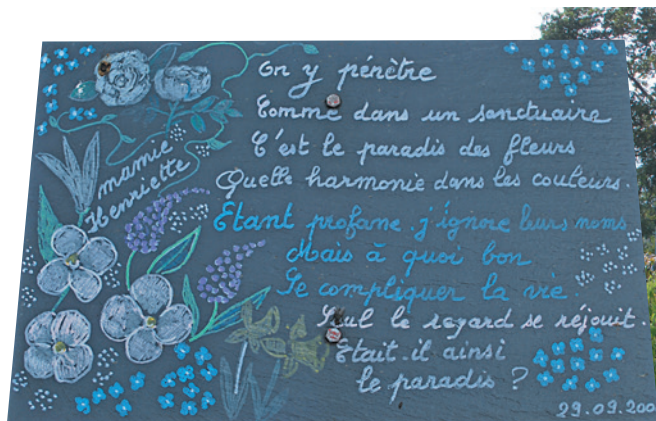 mamie
Henriette
On y pénètre
Comme dans un sanctuaire
C'est le paradis des fleurs
Quelle harmonie dans les couleurs.
Etant profane j'ignore leurs noms
Mais à quoi bon
Se compliquer la vie.
Seul le regard se réjouit.
Etait-il ainsi
le paradis ?
29.09.200